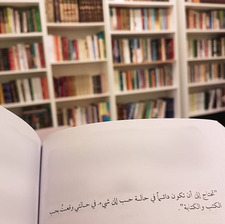 "تحتاج إلى أن تكون دائماً في حالة حب إلى شيء. في حالتي وقعتُ بحب
الكتب و الكتابة"